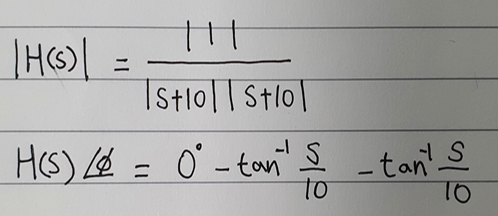 |H(s)| = |1| / |s+10| |s+10|
H(s) ∠ϕ = 0° - tan⁻¹ s/10 - tan⁻¹ s/10